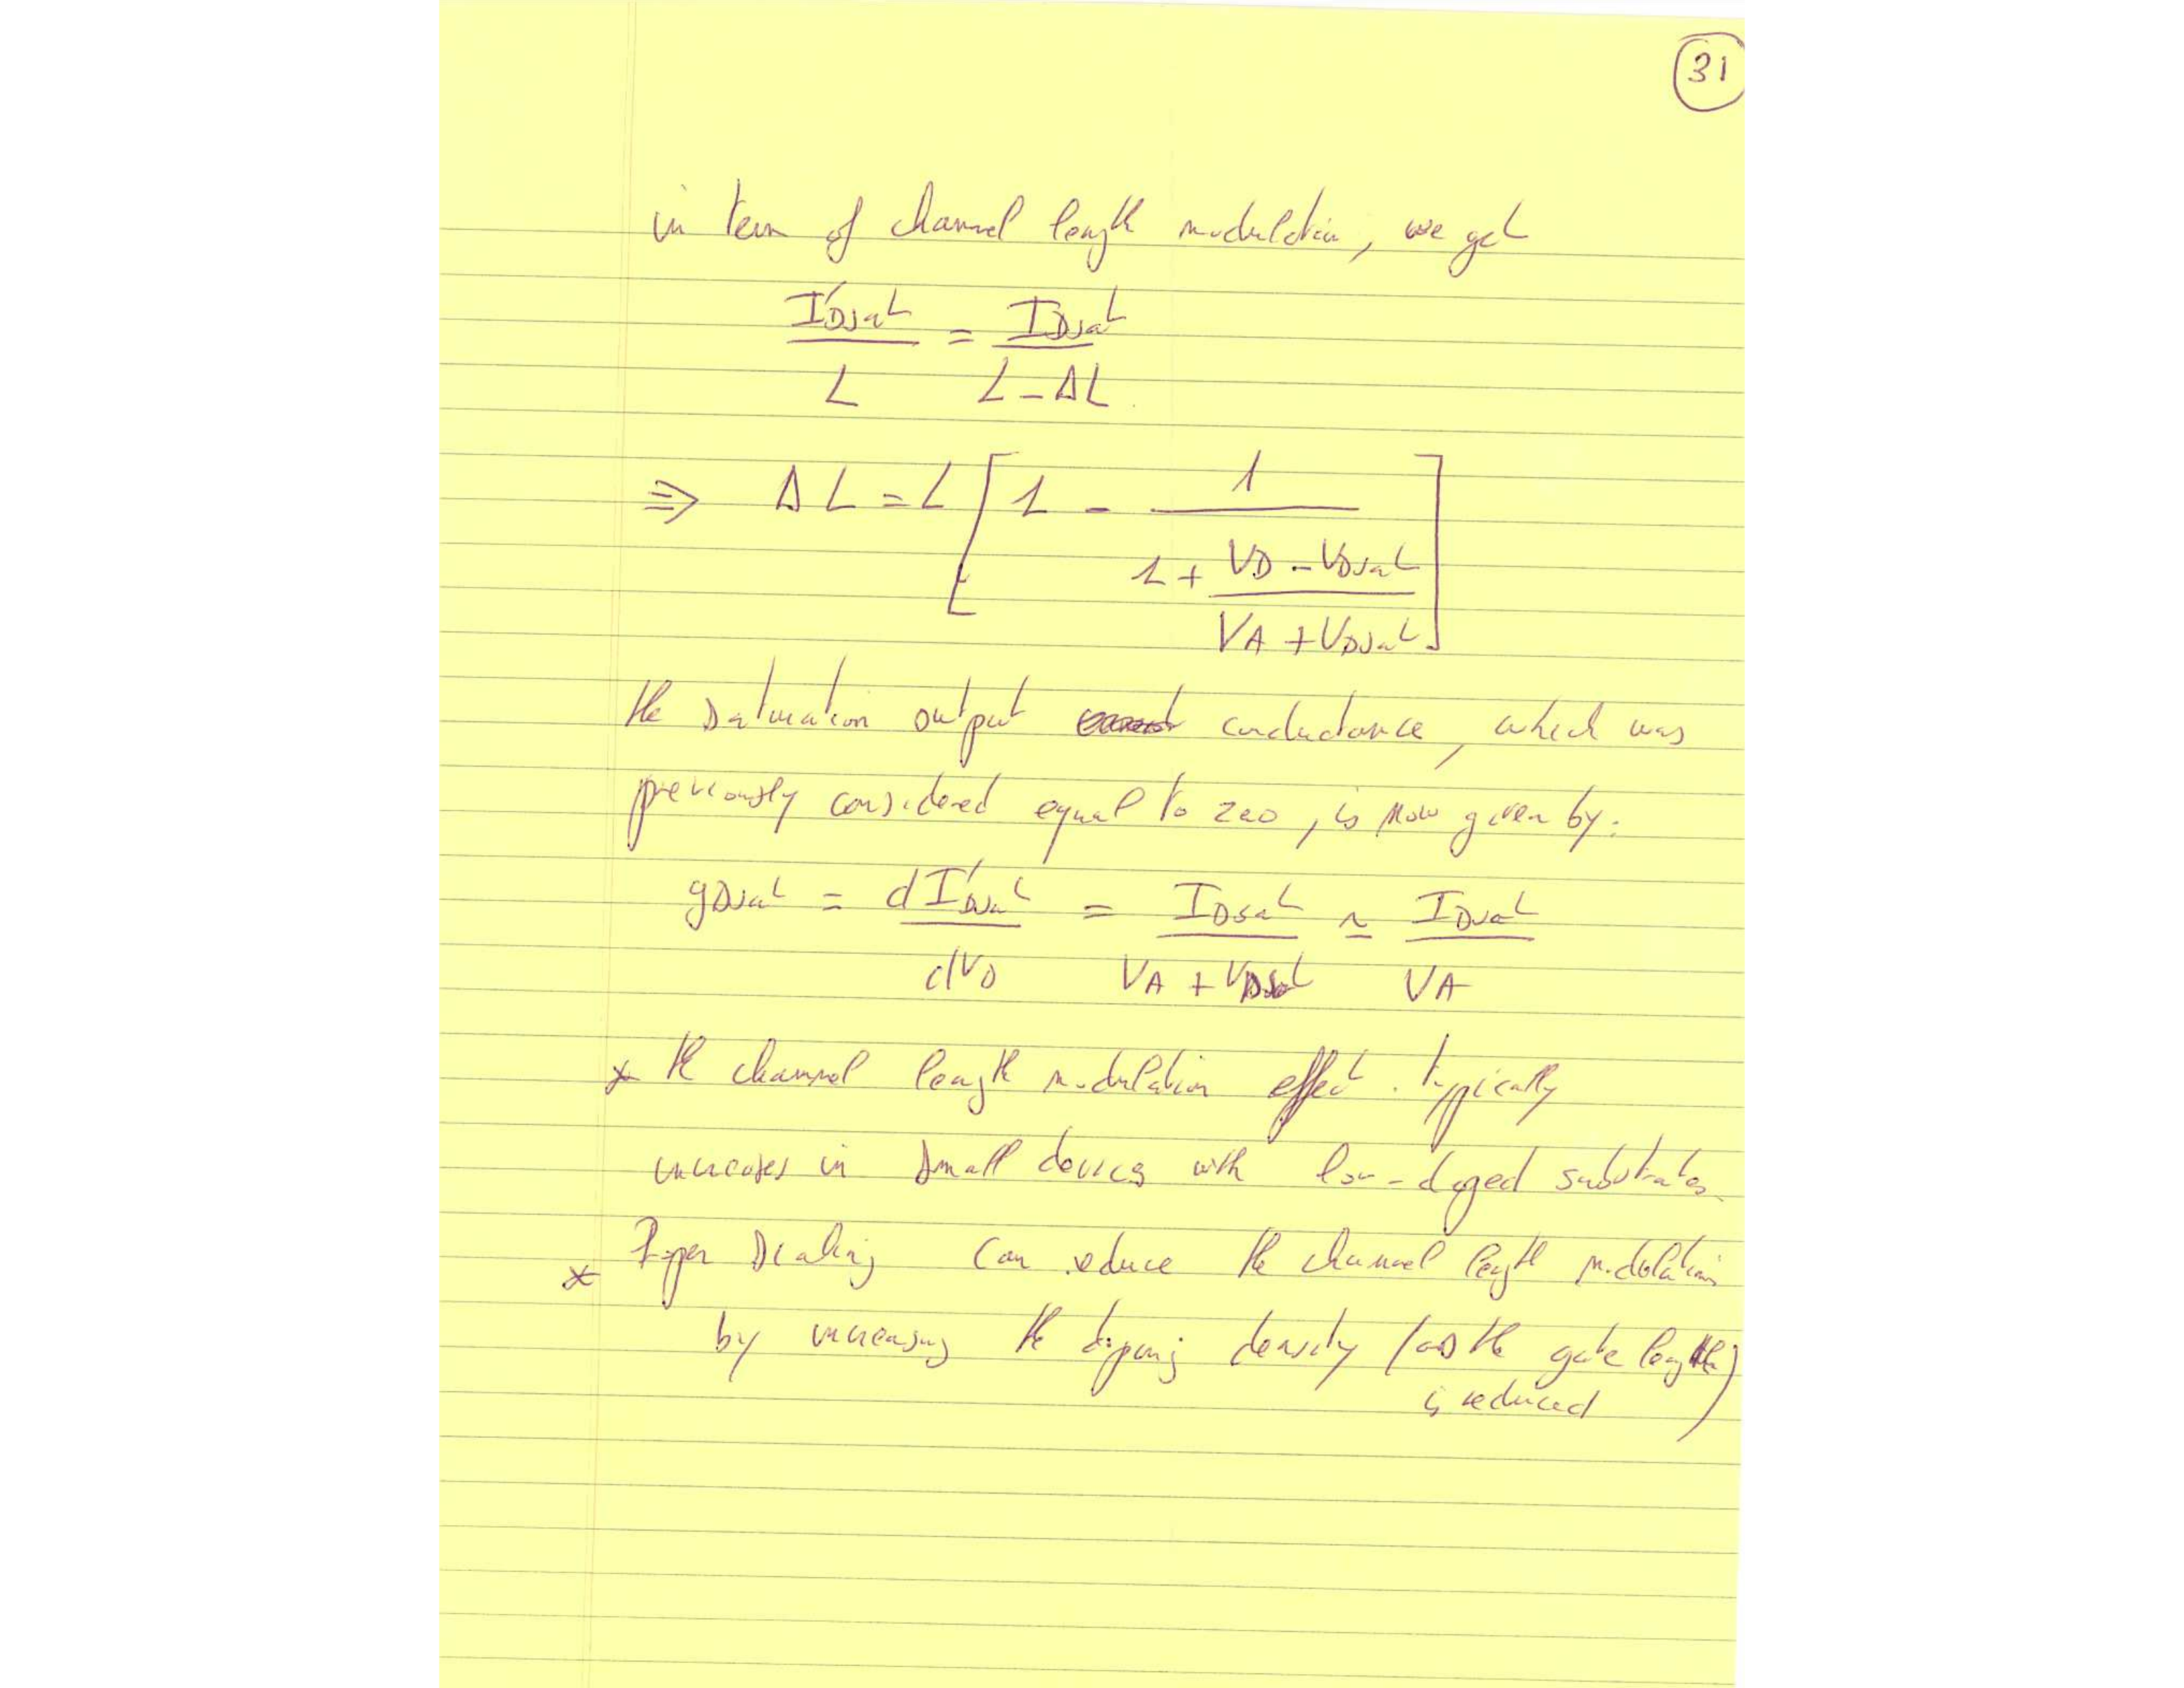 31
in term of channel length modulation, we get
I'Dsat / L = IDsat / (L - ΔL)
⇒ ΔL = L [ 1 - 1 / (1 + (VD - VDsat) / (VA + VDsat)) ]
the saturation output conductance, which was
previously considered equal to zero, is now given by:
gDsat = dI'Dsat / dVD = IDsat / (VA + VDsat) ≃ IDsat / VA
* the channel length modulation effect typically
increases in small devices with low-doped substrates.
* Proper scaling can reduce the channel length modulation
by increasing the doping density (as the gate length
is reduced)